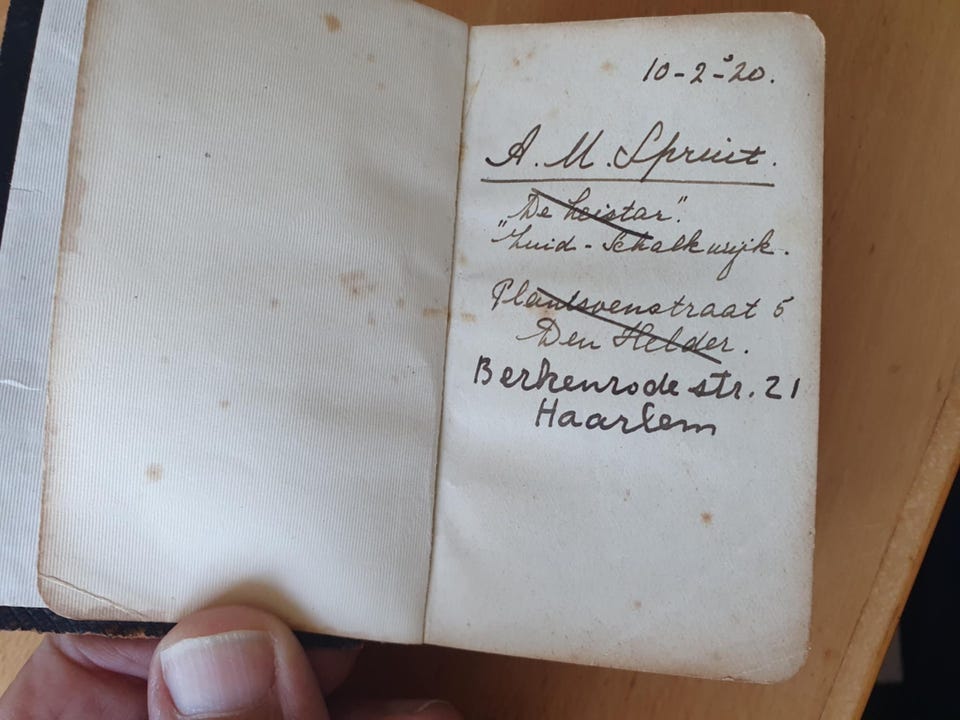 10-2-'20.
A. M. Spruit.
"De Leistar".
"Zuid-Schalkwijk.
Plantsoenstraat 5
Den Helder.
Berkenrodestr. 21
Haarlem